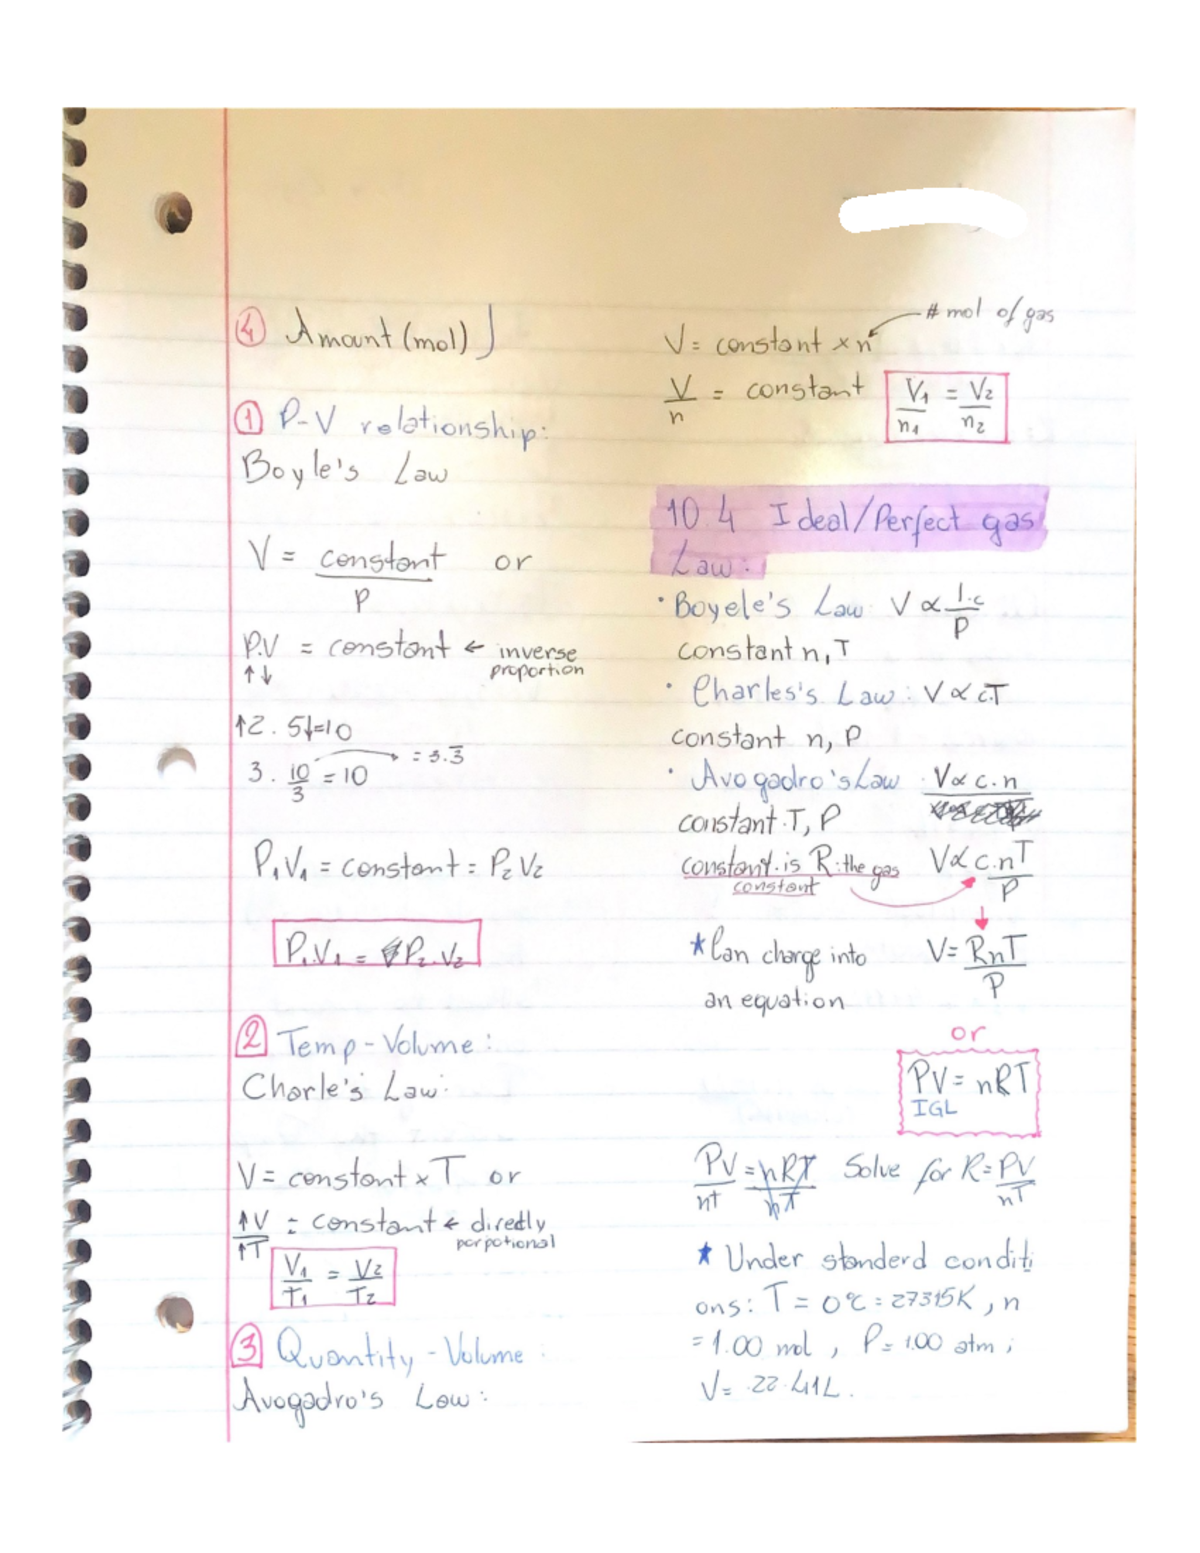 ④ Amount (mol)
① P-V relationship:
Boyle's Law
V = constant or
P
P.V = constant ← inverse
↑↓ proportion
↑2 . 5↓=10
= 3.3̅
3 . 10 = 10
3
P₁V₁ = constant = P₂V₂
P₁.V₁ = P₂.V₂
② Temp-Volume:
Charle's Law:
V = constant × T or
↑V = constant ← directly
↑T porpotional
V₁ = V₂
T₁ T₂
③ Quantity-Volume:
Avogadro's Law:
# mol of gas
V = constant × n
V = constant V₁ = V₂
n n₁ n₂
10.4 Ideal/Perfect gas
Law:
• Boyele's Law: V ∝ 1.c
P
constant n, T
• Charles's Law: V ∝ c.T
constant n, P
• Avogadro's Law V ∝ c.n
constant T, P
constant is R: the gas V ∝ c.nT
constant P
* Can change into V = RnT
an equation P
or
PV = nRT
IGL
PV = nRT Solve for R = PV
nT nT nT
* Under standerd conditi
ons: T = 0°C = 27315K , n
= 1.00 mol , P = 1.00 atm ;
V = 22.41L.